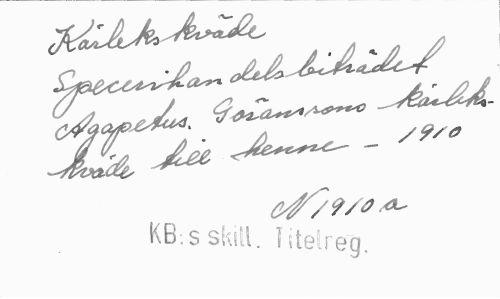 Kärlekskväde
Specerihandelsbiträdet
Agapetus. Göranssons kärleks-
kväde till henne – 1910
N 1910 a
KB:s skill. Titelreg.